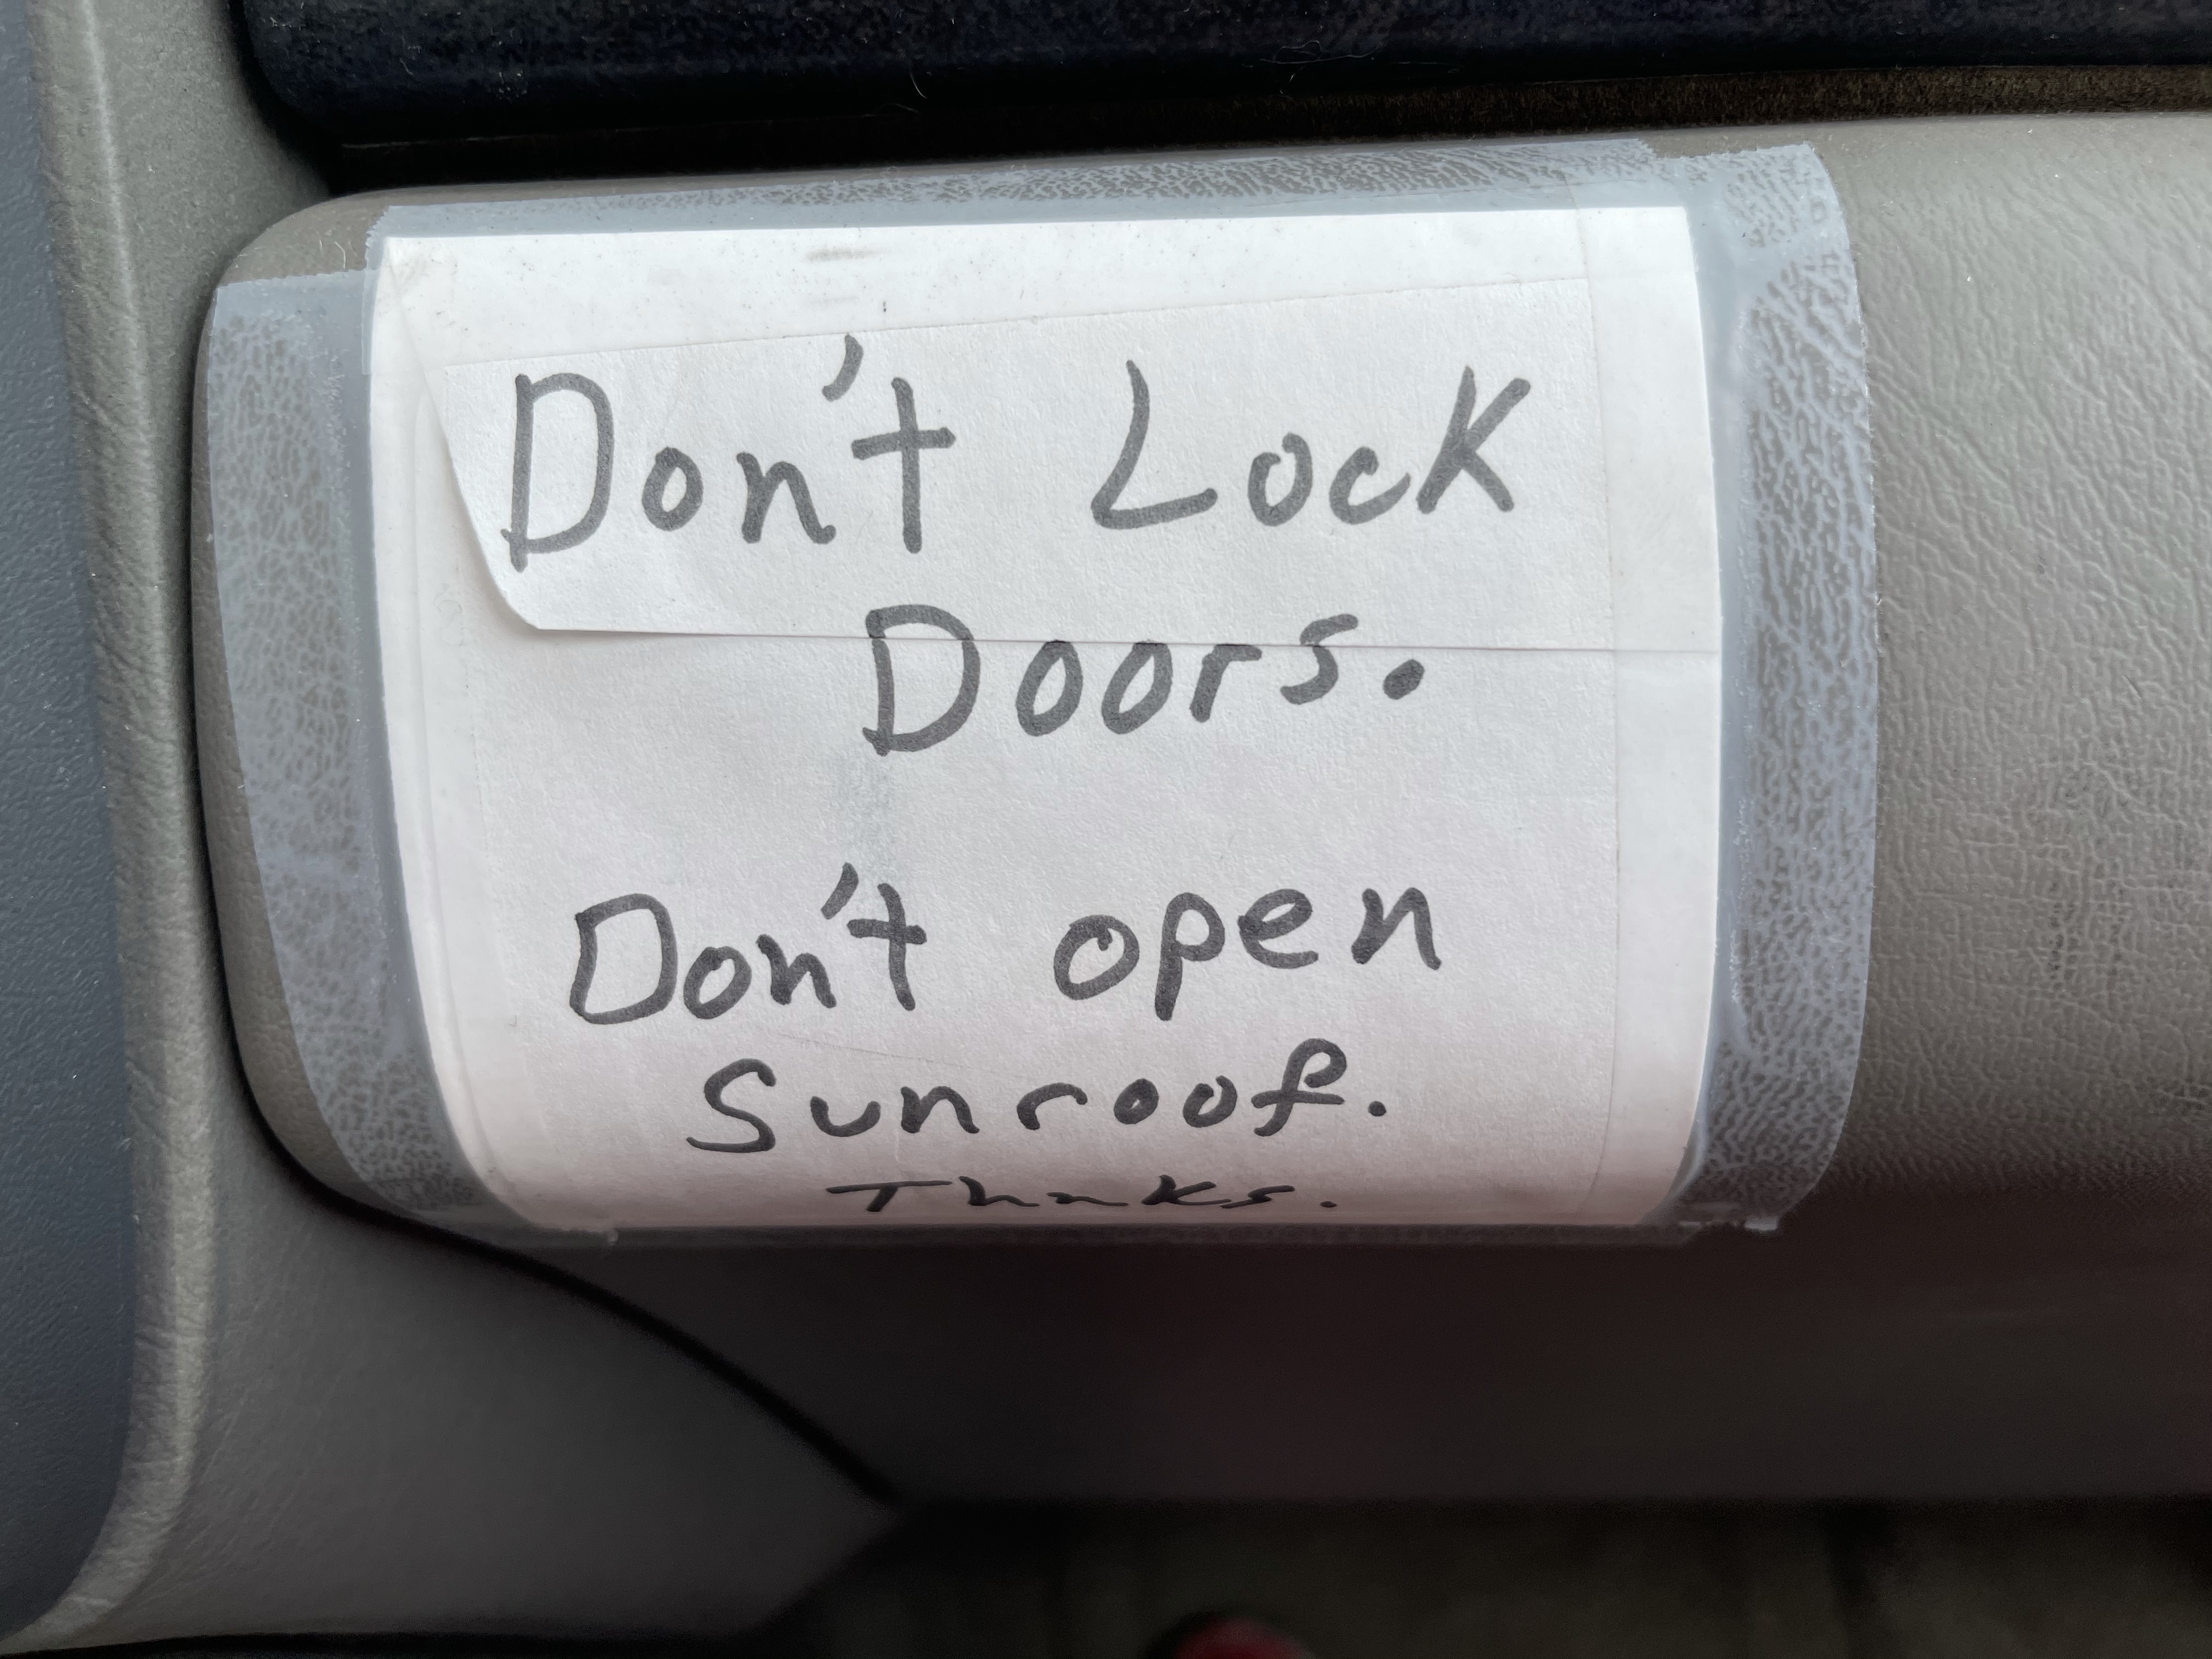 Don't Lock
Doors.
Don't open
Sunroof.
Thnks.